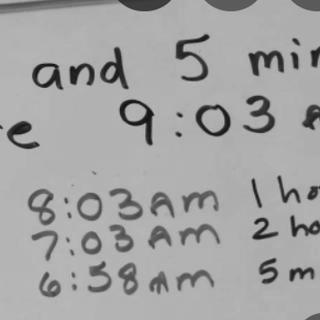 and 5 min
9:03
8:03 AM 1 ho
7:03 AM 2 ho
6:58 AM 5 m